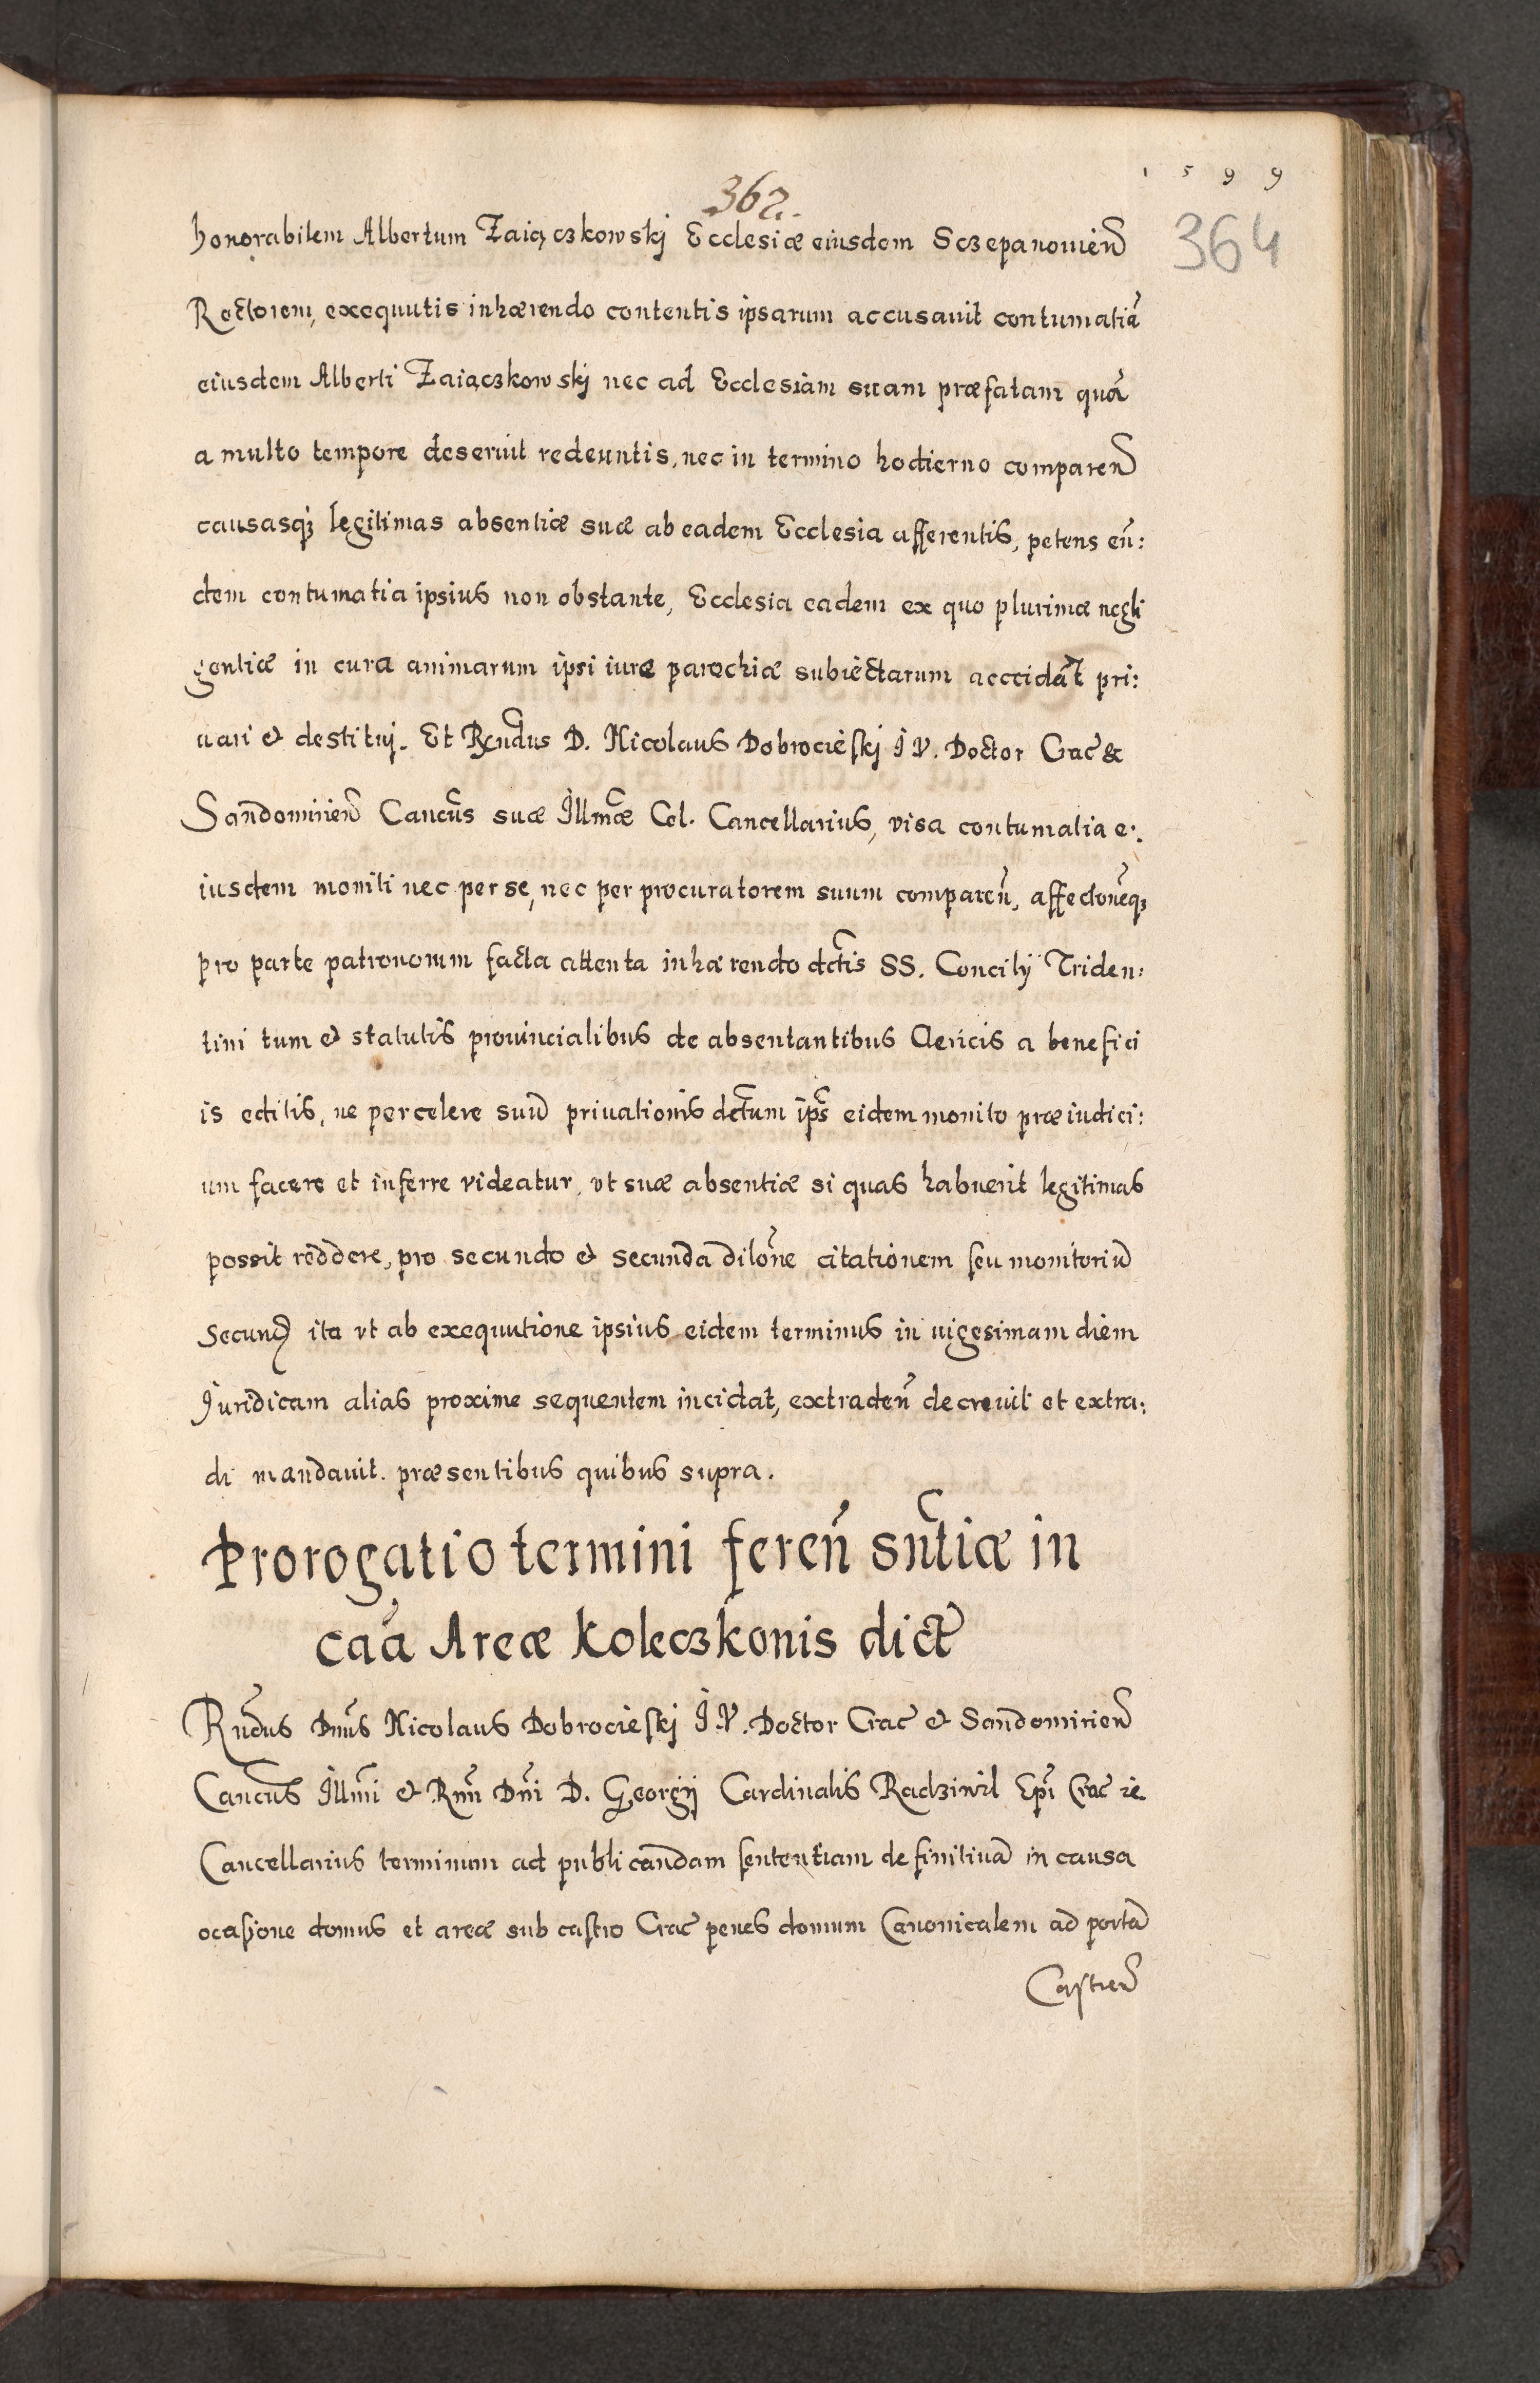 1599
362.
364
honorabilem Albertum Zaiączkowskj Ecclesiæ eiusdem Sczepanowień
Rectorem, exequutis inhærendo contentis ipsarum accusavit contumatiã
eiusdem Alberti Zaiączkowskj nec ad Ecclesiam suam præfatam quã
a multo tempore deseruit redeuntis, nec in termino hodierno compareñ
causasqȝ legitimas absentiæ suæ ab eadem Ecclesia afferentis, petens eũ:
dem contumatia ipsius non obstante, Ecclesia eadem ex quo plurimæ negli
gentiæ in cura animarum ipsi iuræ parochiæ subiectarum acccidãt pri:
uari et destituj. Et Rendus D. Nicolaus Dobrocieskj I V. Doctor Crac̃ &
Sandomirieñ Cancũs suæ Illmæ Cel. Cancellarius, visa contumatia e:
iusdem moniti nec per se, nec per procuratorem suum compareñ, affectonẽqȝ
pro parte patronorum facta attenta inhærendo dctis SS. Concilij Triden:
tini tum et statutis prouincialibus de absentantibus Clericis a benefici
is editis, ne percelere suũ priuationis dctum ips̃ eidem monito præiudici:
um facere et inferre videatur, vt suæ absentiæ si quas habuerit legitimas
possit reddere, pro secundo et secunda dilõne citationem seu monitoriũ
Secund̃ ita vt ab exequutione ipsius eidem terminus in uigesimam diem
Juridicam alias proxime sequentem incidat, extradeñ decreuit et extra:
di mandauit. præsentibus quibus supra.
Prorogatio termini fereñ sñtiæ in
caã Areæ Koleczkonis dict̃
Rñdus Dnũs Nicolaus Dobrocieskj I.V. Doctor Crac̃ et Sandomirieñ
Cancũs Illmi et Rmi Dni D. Georgij Cardinalis Radziwil Epĩ Crac̃ ie.
Cancellarius terminum ad publicandam sententiam definitiuã in causa
ocasione domus et areæ sub castro Crac̃ penes domum Canonicalem ad portã
Castreñ